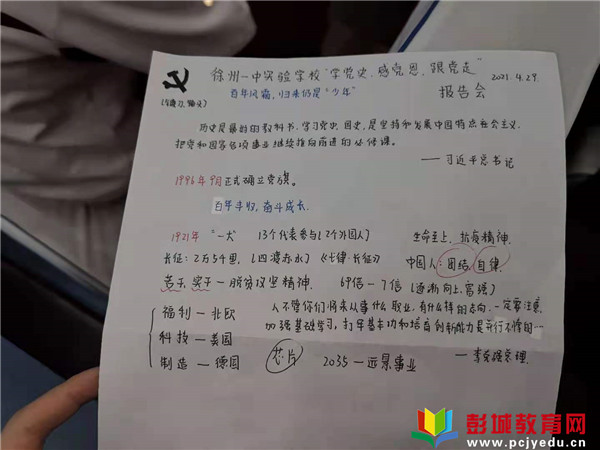 徐州一中实验学校"学党史、感党恩、跟党走"
2021.4.29
百年风霜,归来仍是"少年"
报告会
历史是最好的教科书,学习党史、国史,是坚持和发展中国特色社会主义、
把党和国家各项事业继续推向前进的必修课。
——习近平总书记
1996年9月正式确立党旗。
百年丰收,奋斗成长.
1921年 "一大" 13个代表参与(2个外国人) 生命至上,抗疫精神.
长征:2万5千里, (四渡赤水)《七律·长征》 中国人:团结,自律.
苦干,实干—脱贫攻坚精神. 69倍—7倍(逐渐向上,富强)
福利—北欧 人不管你们将来从事什么职业,有什么样的志向,一定要注意
科技—美国 加强基础学习,打牢基本功和培育创新能力是并行不悖的…
制造—德国 芯片 2035—远景事业 —李克强总理.
彭城教育网
www.pcjyedu.cn